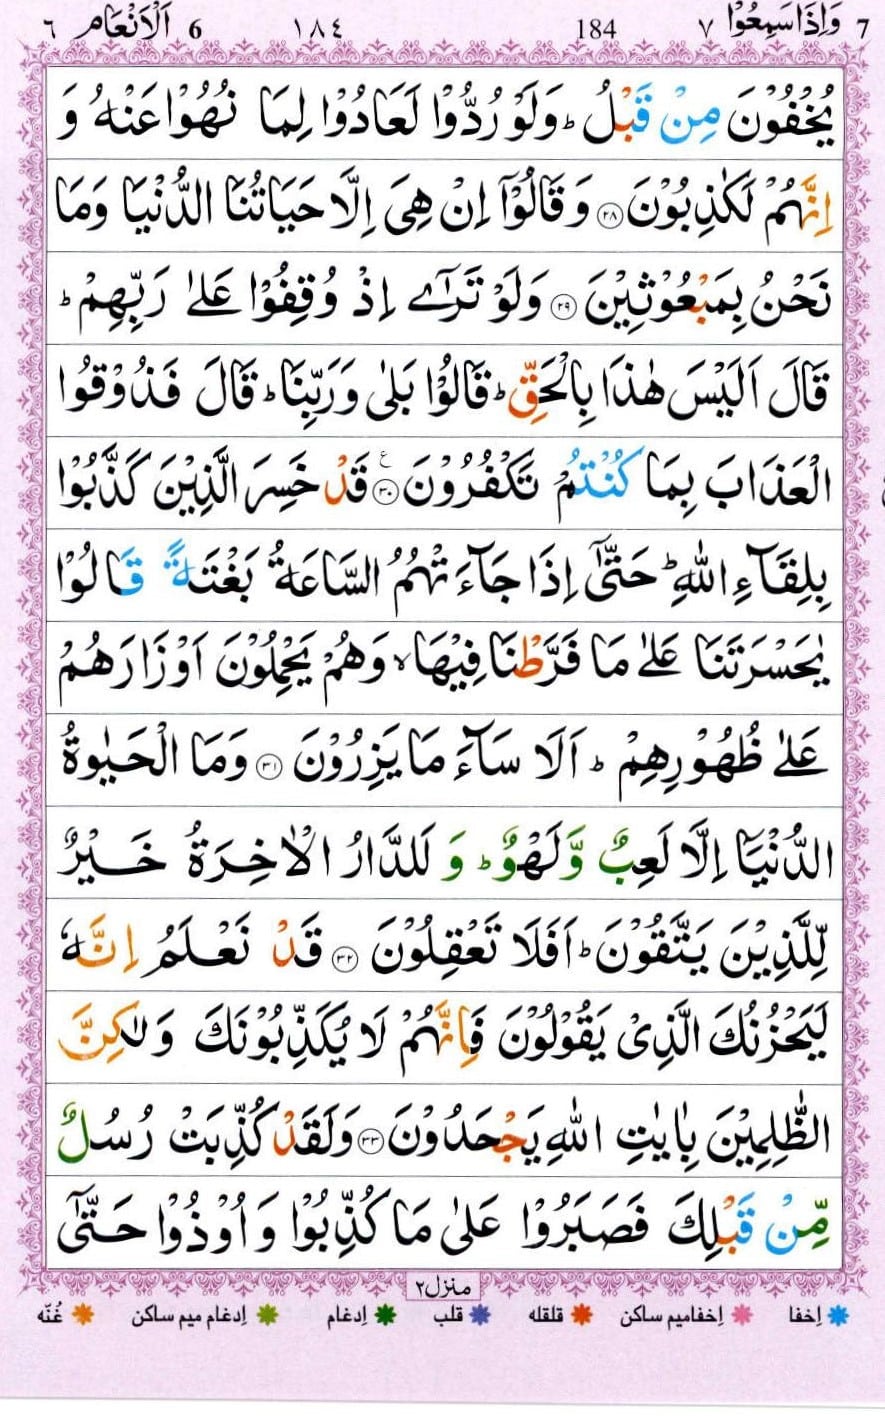 7 وَاِذَاسَمِعُوْا ٧ 184 ١٨٤ 6 اَلْاَنْعَام ٦
يُخْفُوْنَ مِنْ قَبْلُ ؕ وَلَوْ رُدُّوْا لَعَادُوْا لِمَا نُهُوْا عَنْهُ وَ
اِنَّهُمْ لَكٰذِبُوْنَ ۝۲۸ وَ قَالُوْۤا اِنْ هِیَ اِلَّا حَیَاتُنَا الدُّنْیَا وَمَا
نَحْنُ بِمَبْعُوْثِیْنَ ۝۲۹ وَلَوْ تَرٰۤی اِذْ وُقِفُوْا عَلٰی رَبِّهِمْ ؕ
قَالَ اَلَیْسَ هٰذَا بِالْحَقِّ ؕ قَالُوْا بَلٰی وَرَبِّنَا ؕ قَالَ فَذُوْقُوا
الْعَذَابَ بِمَا كُنْتُمْ تَكْفُرُوْنَ ۝۳۰ ع قَدْ خَسِرَ الَّذِیْنَ كَذَّبُوْا
بِلِقَآءِ اللّٰهِ ؕ حَتّٰۤی اِذَا جَآءَ تْهُمُ السَّاعَةُ بَغْتَةً قَالُوْا
یٰحَسْرَتَنَا عَلٰی مَا فَرَّطْنَا فِیْهَا ۙ وَهُمْ یَحْمِلُوْنَ اَوْزَارَهُمْ
عَلٰی ظُهُوْرِهِمْ ؕ اَلَا سَآءَ مَا یَزِرُوْنَ ۝۳۱ وَمَا الْحَیٰوةُ
الدُّنْیَاۤ اِلَّا لَعِبٌ وَّلَهْوٌ ؕ وَ لَلدَّارُ الْاٰخِرَةُ خَیْرٌ
لِّلَّذِیْنَ یَتَّقُوْنَ ؕ اَفَلَا تَعْقِلُوْنَ ۝۳۲ قَدْ نَعْلَمُ اِنَّهٗ
لَیَحْزُنُكَ الَّذِیْ یَقُوْلُوْنَ فَاِنَّهُمْ لَا یُكَذِّبُوْنَكَ وَلٰكِنَّ
الظّٰلِمِیْنَ بِاٰیٰتِ اللّٰهِ یَجْحَدُوْنَ ۝۳۳ وَلَقَدْ كُذِّبَتْ رُسُلٌ
مِّنْ قَبْلِكَ فَصَبَرُوْا عَلٰی مَا كُذِّبُوْا وَ اُوْذُوْا حَتّٰۤی
منزل۲
اِخفا اِخفامیم ساکن قلقله قلب اِدغام اِدغام میم ساکن غُنّه